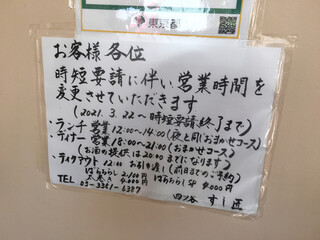 東京都
お客様各位
時短要請に伴い、営業時間を
変更させていただきます
(2021.3.22〜時短要請終了まで)
・ランチ営業 12:00〜14:00(夜と同じおまかせコース)
・ディナー営業 18:00〜21:00(おまかせコース)
(お酒の提供は20:00までになります)
・テイクアウト 12:00 お引き渡し(前日までのご予約)
ばらちらし 2,100円
太巻き 4,000円
4,000円
TEL 03-3351-6387
四ツ谷 すし匠